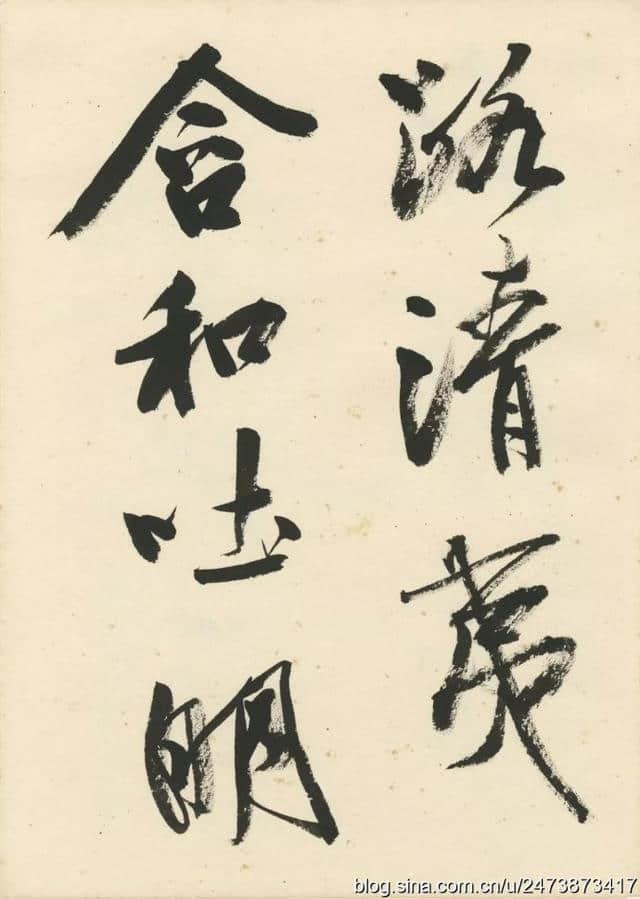 路清夷
含和吐明
blog.sina.com.cn/u/2473873417